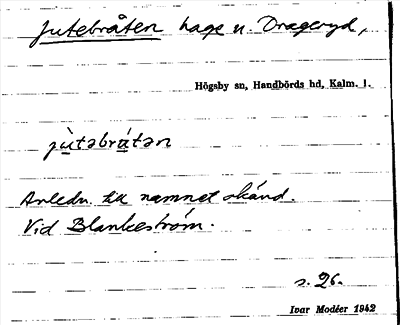 Jutebråten hage u. Drageryd,
Högsby sn, Handbörds hd, Kalm. l.
jùtəbrátən
Anledn. till namnet okänd.
Vid Blankeström.
s. 26.
Ivar Modéer 1942